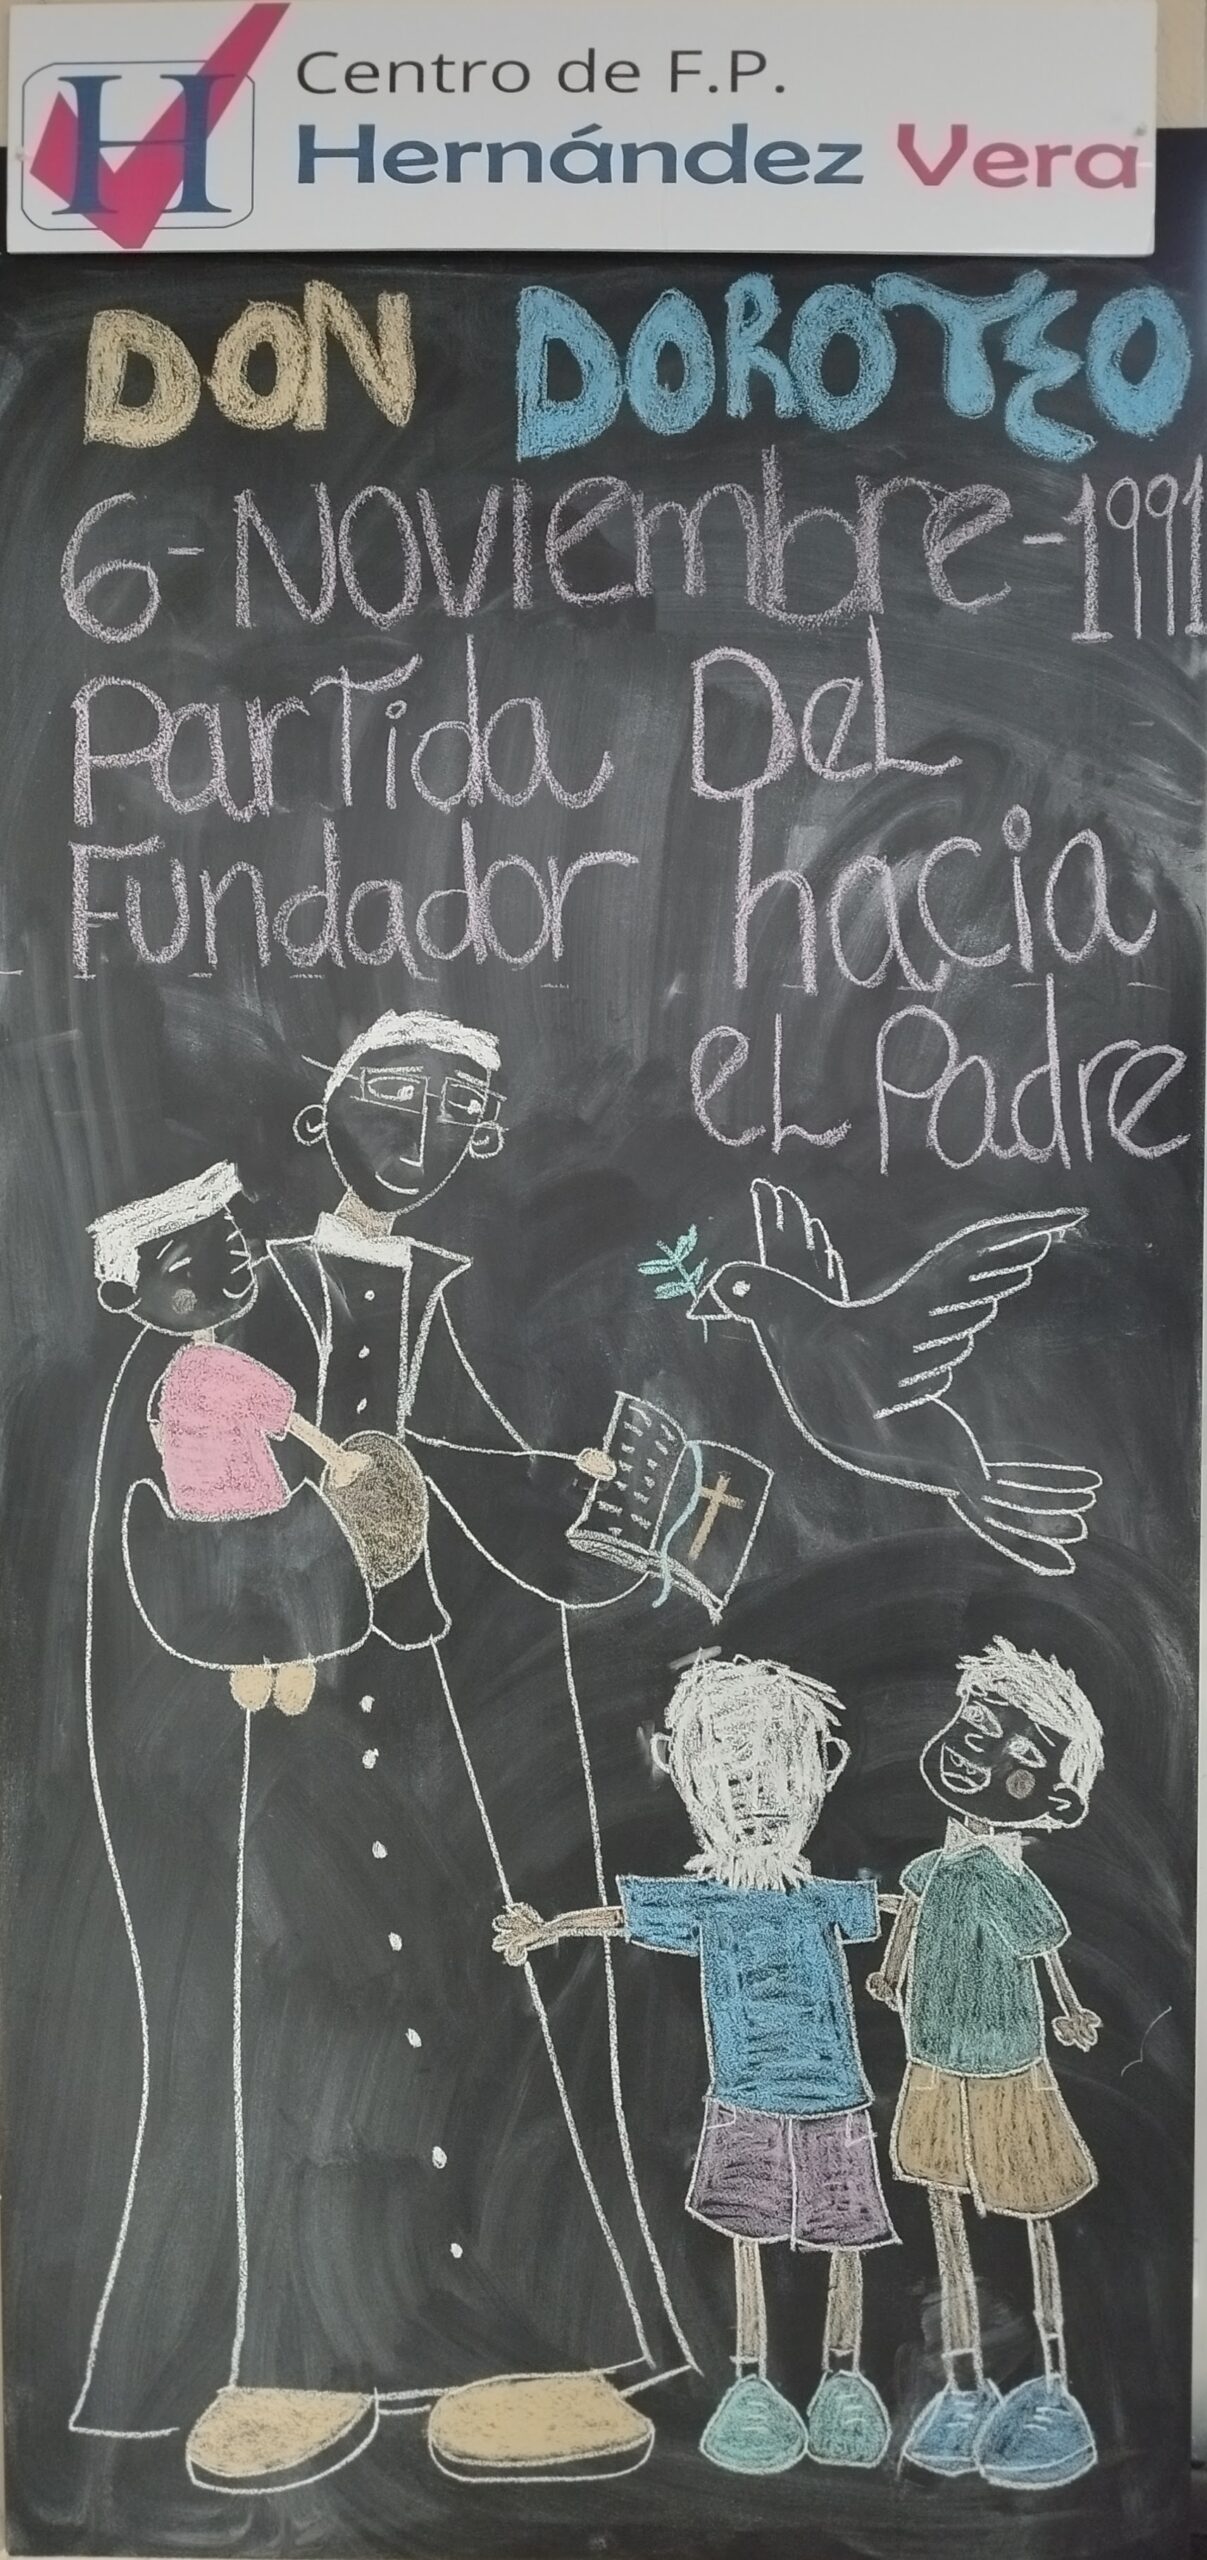 H
Centro de F.P.
Hernández Vera
DON DOROTEO
6-Noviembre-1991
Partida Del
Fundador hacia
eL Padre